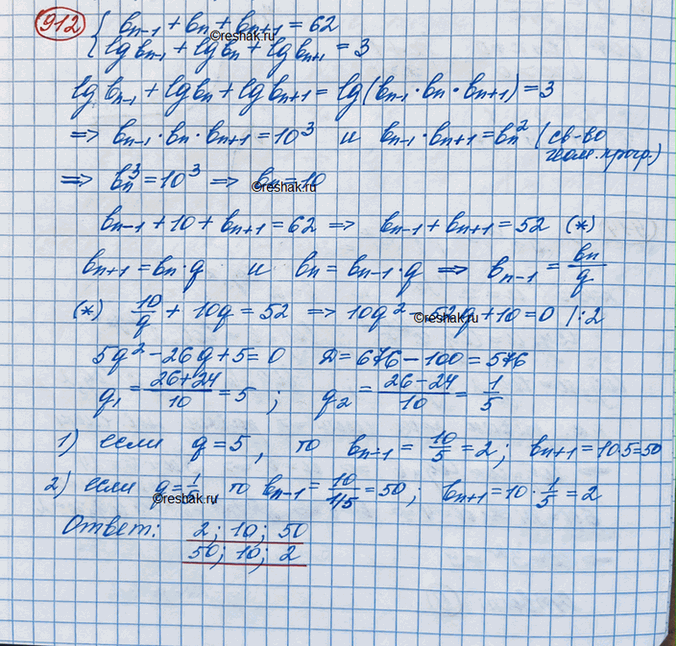 912 { bₙ₋₁ + bₙ + bₙ₊₁ = 62
©reshak.ru
lg bₙ₋₁ + lg bₙ + lg bₙ₊₁ = 3
lg bₙ₋₁ + lg bₙ + lg bₙ₊₁ = lg(bₙ₋₁ · bₙ · bₙ₊₁) = 3
⇒ bₙ₋₁ · bₙ · bₙ₊₁ = 10³ и bₙ₋₁ · bₙ₊₁ = bₙ² (св-во
геом. прогр.)
⇒ bₙ³ = 10³ ⇒ bₙ = 10
©reshak.ru
bₙ₋₁ + 10 + bₙ₊₁ = 62 ⇒ bₙ₋₁ + bₙ₊₁ = 52 (*)
bₙ₊₁ = bₙ · q и bₙ = bₙ₋₁ · q ⇒ bₙ₋₁ = bₙ/q
(*) 10/q + 10q = 52 ⇒ 10q² - 52q + 10 = 0 /:2
©reshak.ru
5q² - 26q + 5 = 0 Д = 676 - 100 = 576
q₁ = (26+24)/10 = 5 ; q₂ = (26-24)/10 = 1/5
1) если q = 5, то bₙ₋₁ = 10/5 = 2; bₙ₊₁ = 10·5 = 50
2) если q = 1/5, то bₙ₋₁ = 10/1/5 = 50; bₙ₊₁ = 10 · 1/5 = 2
©reshak.ru
Ответ: 2; 10; 50
50; 10; 2